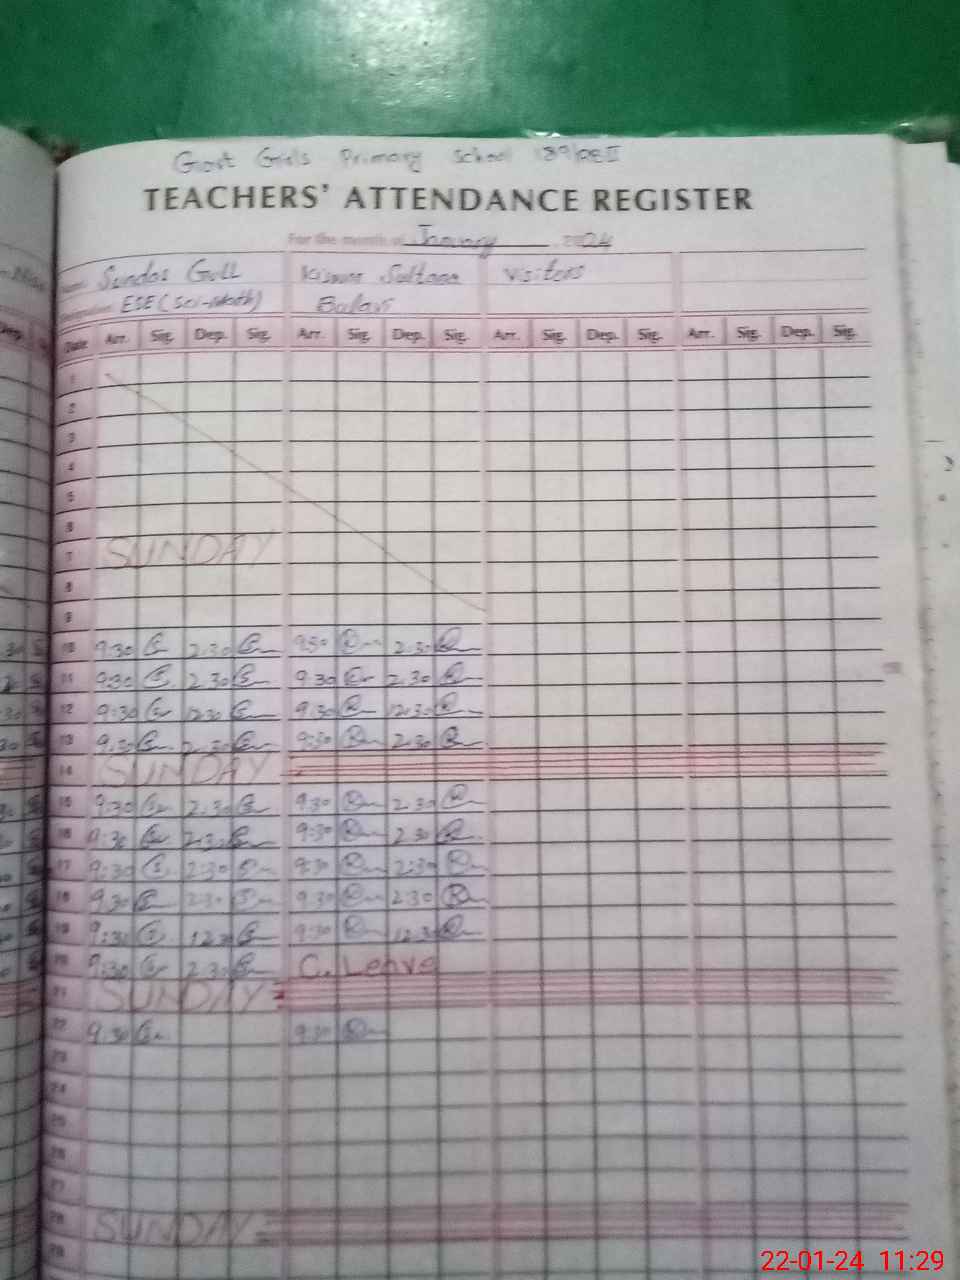 Govt Girls Primary School 189/
TEACHERS' ATTENDANCE REGISTER
For the month of January 2024
Sundas Gull Sultana Visitors
ESE (Sci-Math)
Date Arr. Sig. Dep. Sig. Arr. Sig. Dep. Sig. Arr. Sig. Dep. Sig. Arr. Sig. Dep. Sig.
1
2
3
4
5
6
7 SUNDAY
8
9
10 9:30 2:30 9:30 2:30
11 9:30 2.30 9:30 2.30
12 9:30 12:30 9:30 12:30
13 9:30 2:30 9:30 2:30
14 SUNDAY
15 9:30 2:30 9:30 2:30
16 9:30 2:30 9:30 2:30
17 9:30 2:30 9:30 2:30
18 9:30 2:30 9:30 2:30
19 9:30 12:30 9:30 12:30
20 9:30 2:30 C. Leave
21 SUNDAY
22 9:30 9:30
23
24
25
26
27
28 SUNDAY
29
22-01-24 11:29